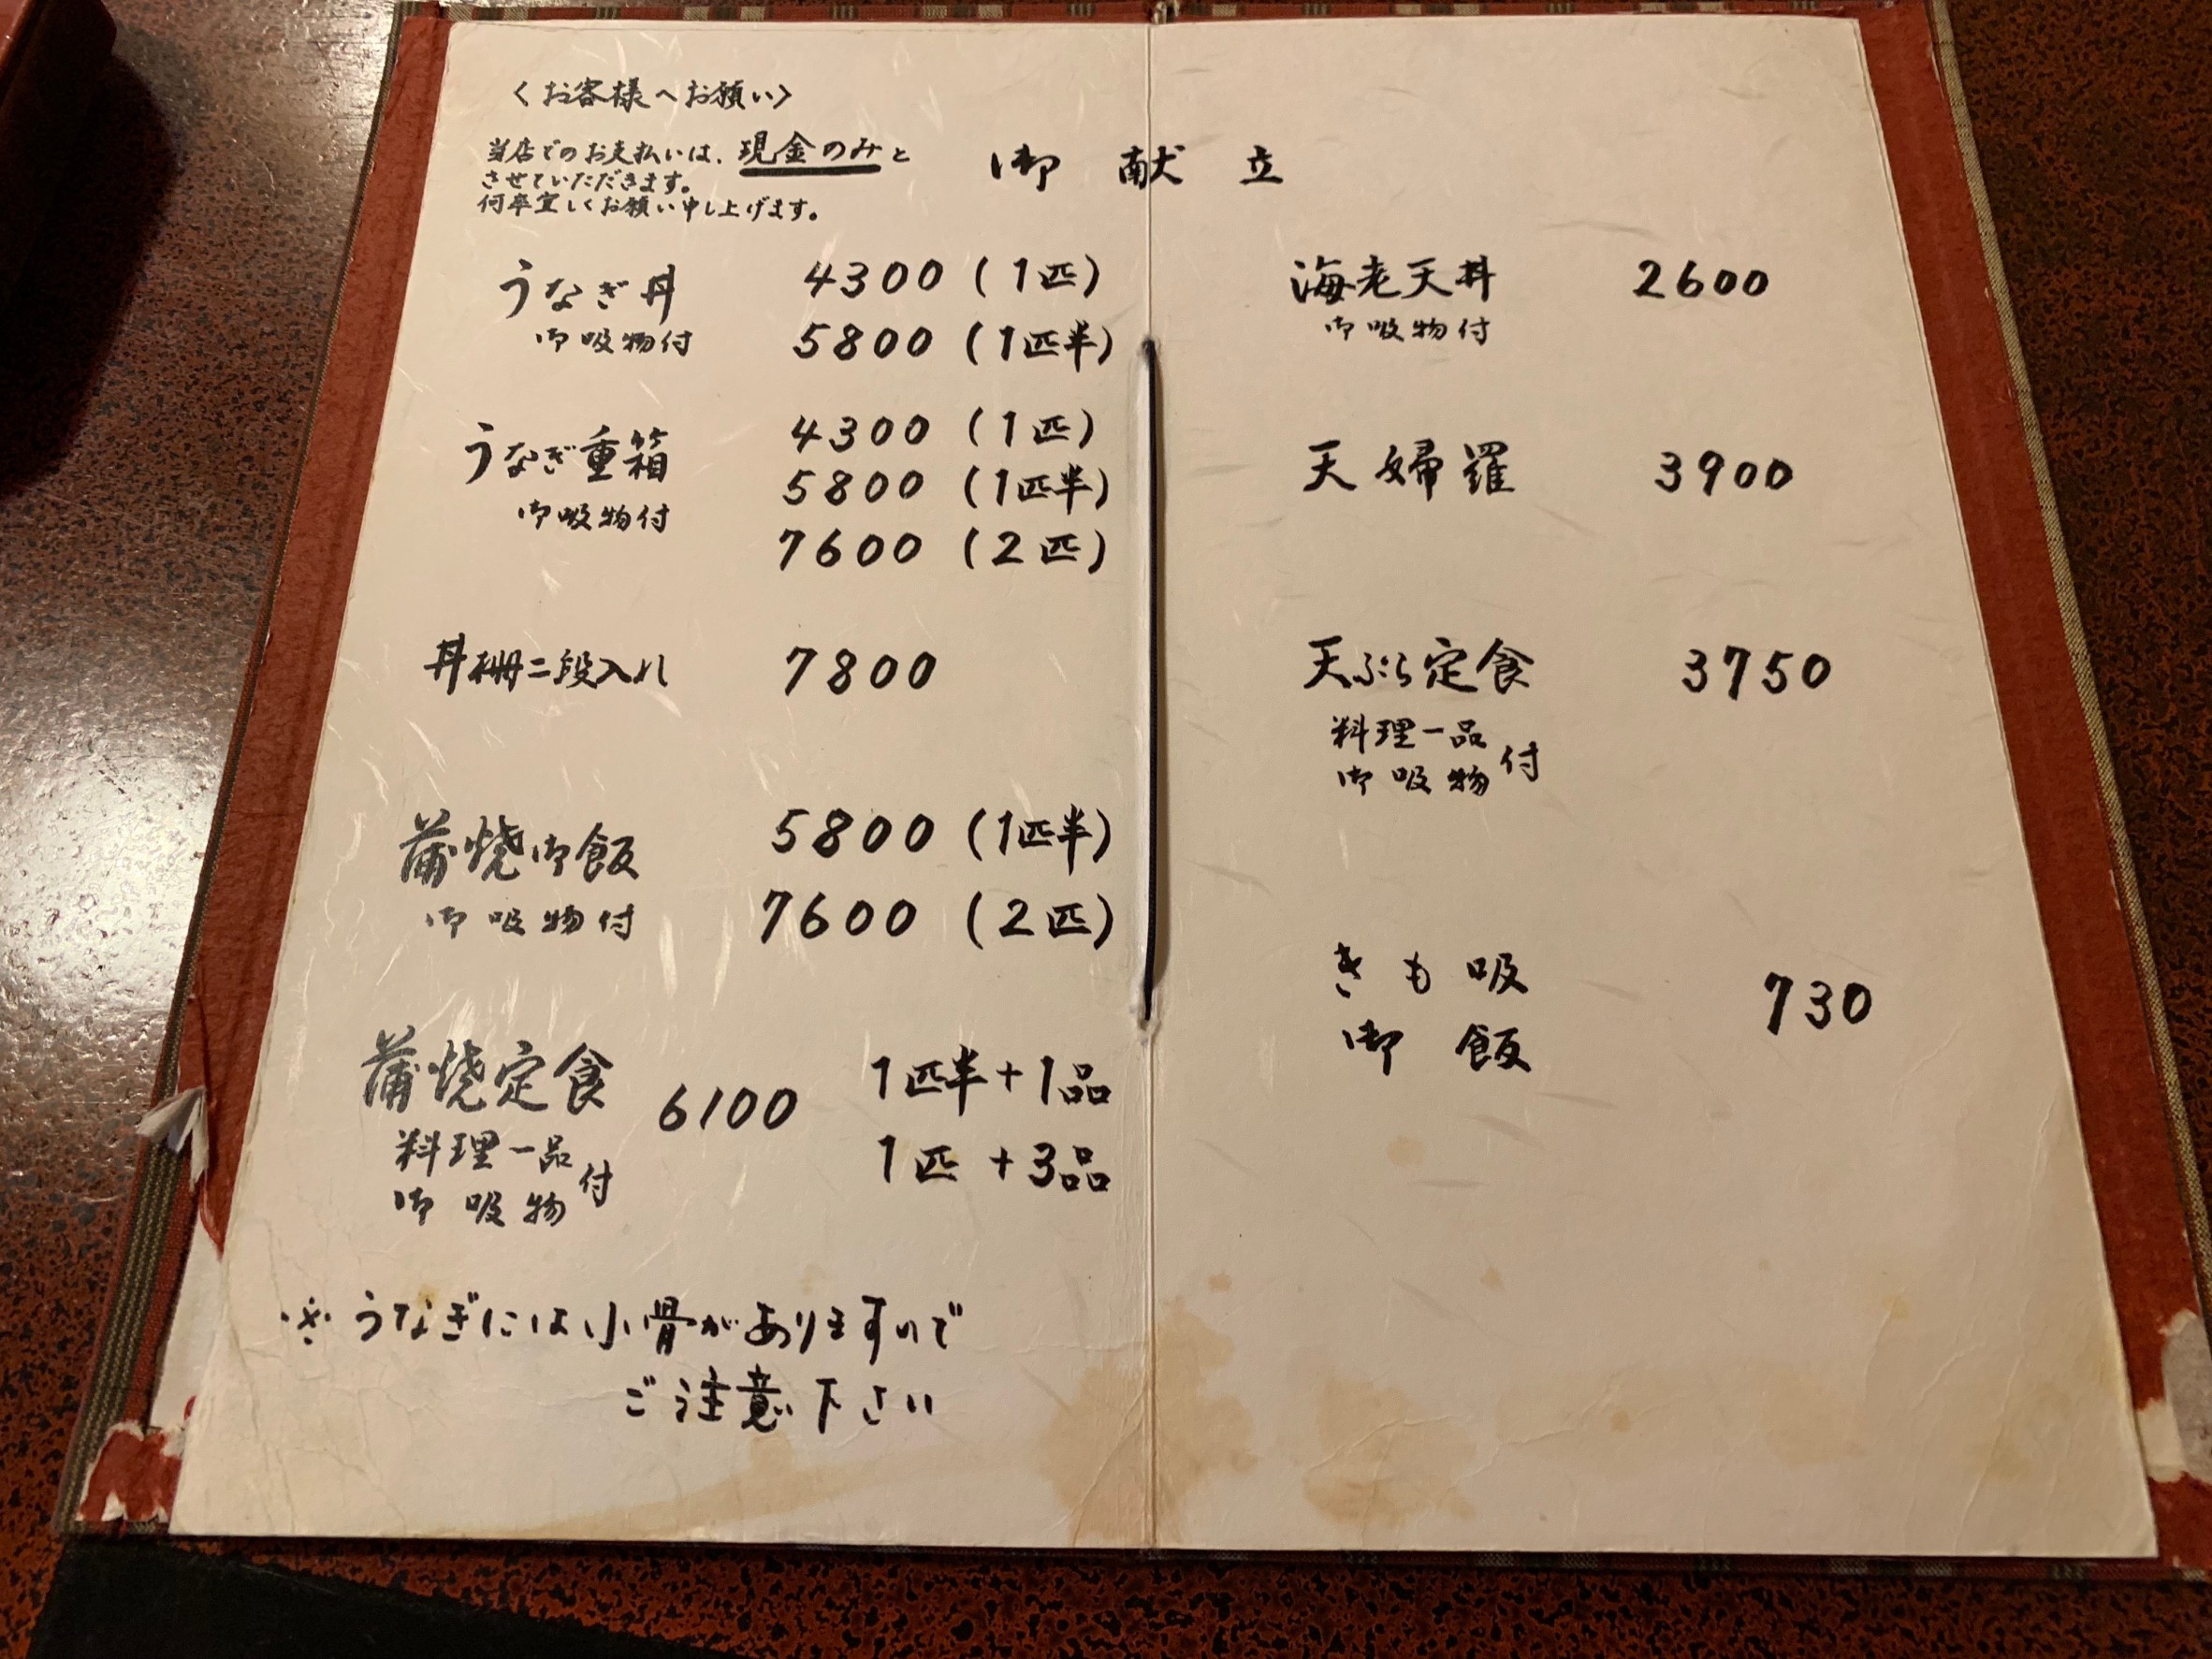 〈お客様へお願い〉
当店でのお支払いは、現金のみと
させていただきます。
何卒宜しくお願い申し上げます。
御献立
うなぎ丼 4300(1匹)
御吸物付 5800(1匹半)
うなぎ重箱 4300(1匹)
5800(1匹半)
御吸物付
7600(2匹)
丼柵二段入れ 7800
蒲焼御飯 5800(1匹半)
御吸物付 7600(2匹)
蒲焼定食 6100 1匹半+1品
料理一品
御吸物付
1匹+3品
※うなぎには小骨がありますので
ご注意下さい
海老天丼 2600
御吸物付
天婦羅 3900
天ぷら定食 3750
料理一品
御吸物付
きも吸
御飯 730